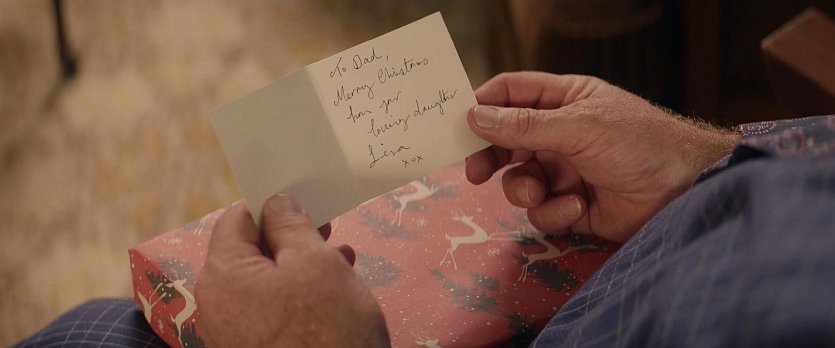 To Dad,
Merry Christmas
from your
loving daughter
Lisa
xox